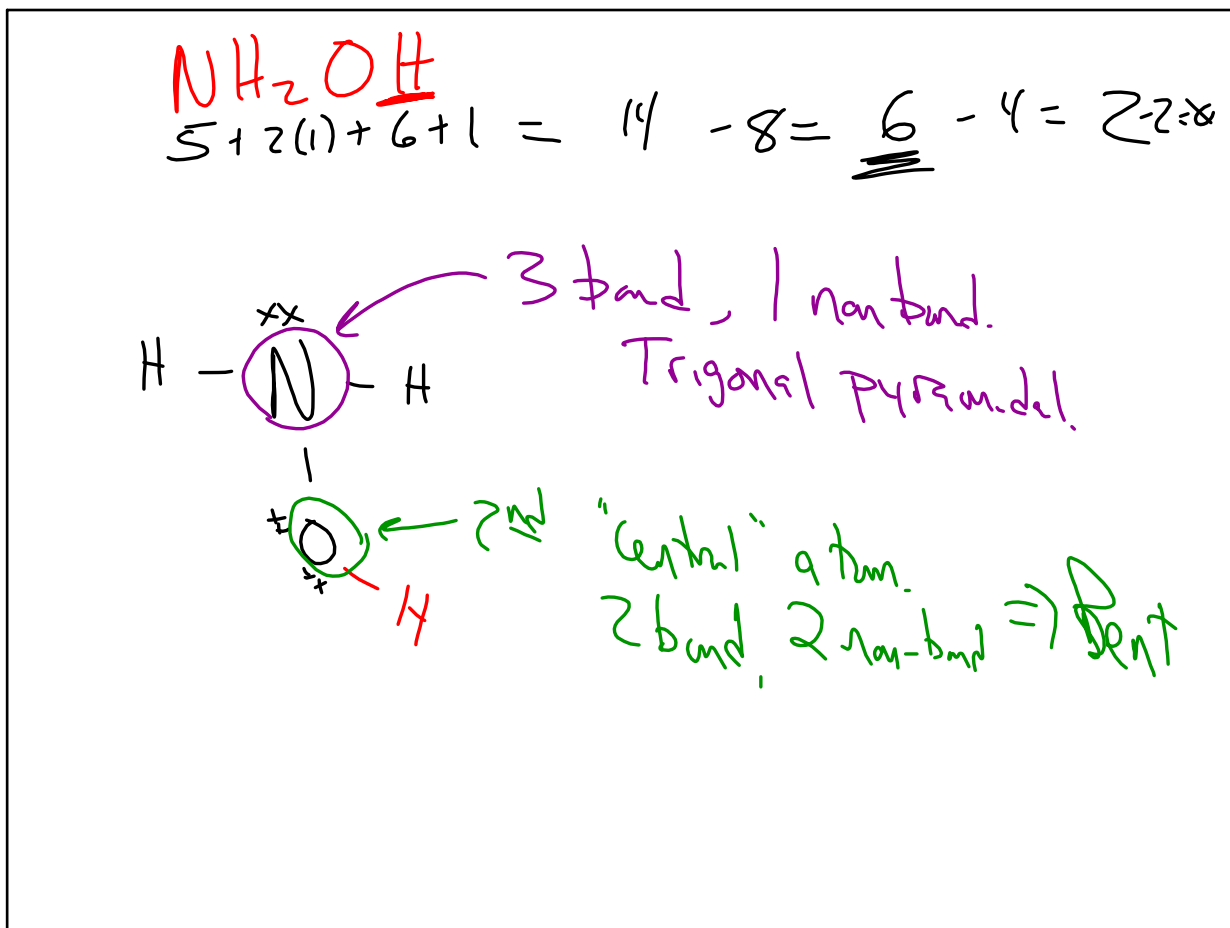 NH₂OH
5 + 2(1) + 6 + 1 = 14 - 8 = 6 - 4 = 2-2=0
3 bond, 1 non bond.
Trigonal pyramidal.
xx
H - N - H
|
xx O
xx H
2nd "Central" atom.
2 bond, 2 non-bond => Bent